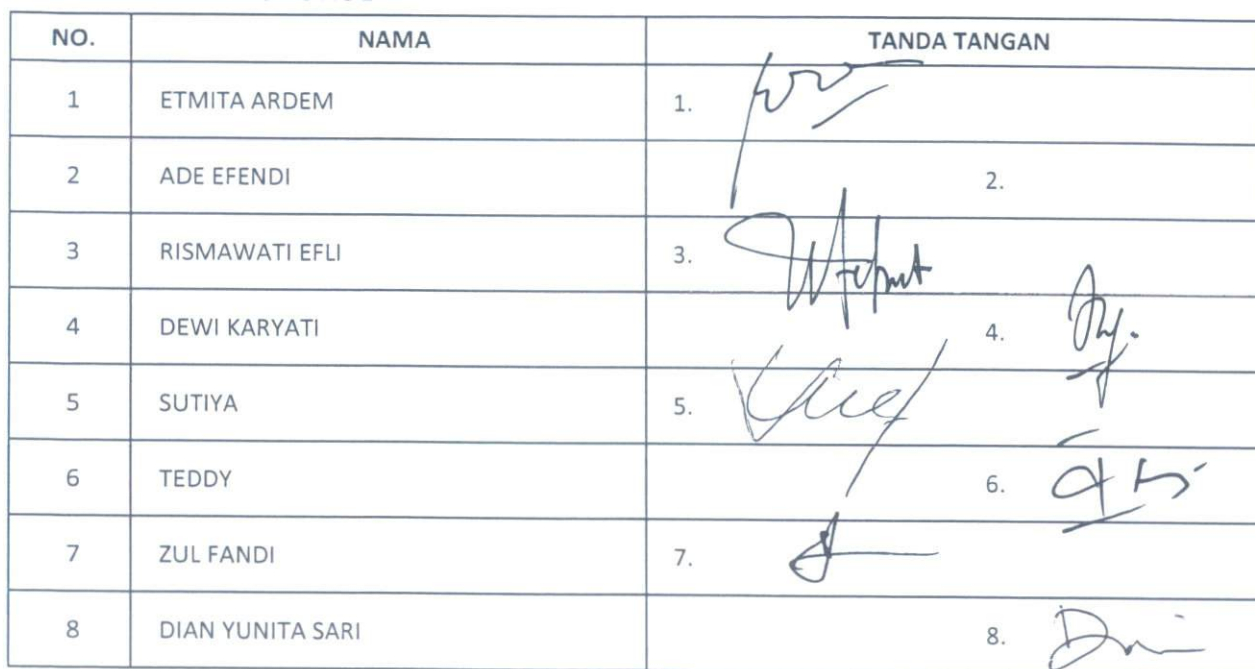 NO. NAMA TANDA TANGAN
1 ETMITA ARDEM 1.
2 ADE EFENDI 2.
3 RISMAWATI EFLI 3.
4 DEWI KARYATI 4.
5 SUTIYA 5.
6 TEDDY 6.
7 ZUL FANDI 7.
8 DIAN YUNITA SARI 8.